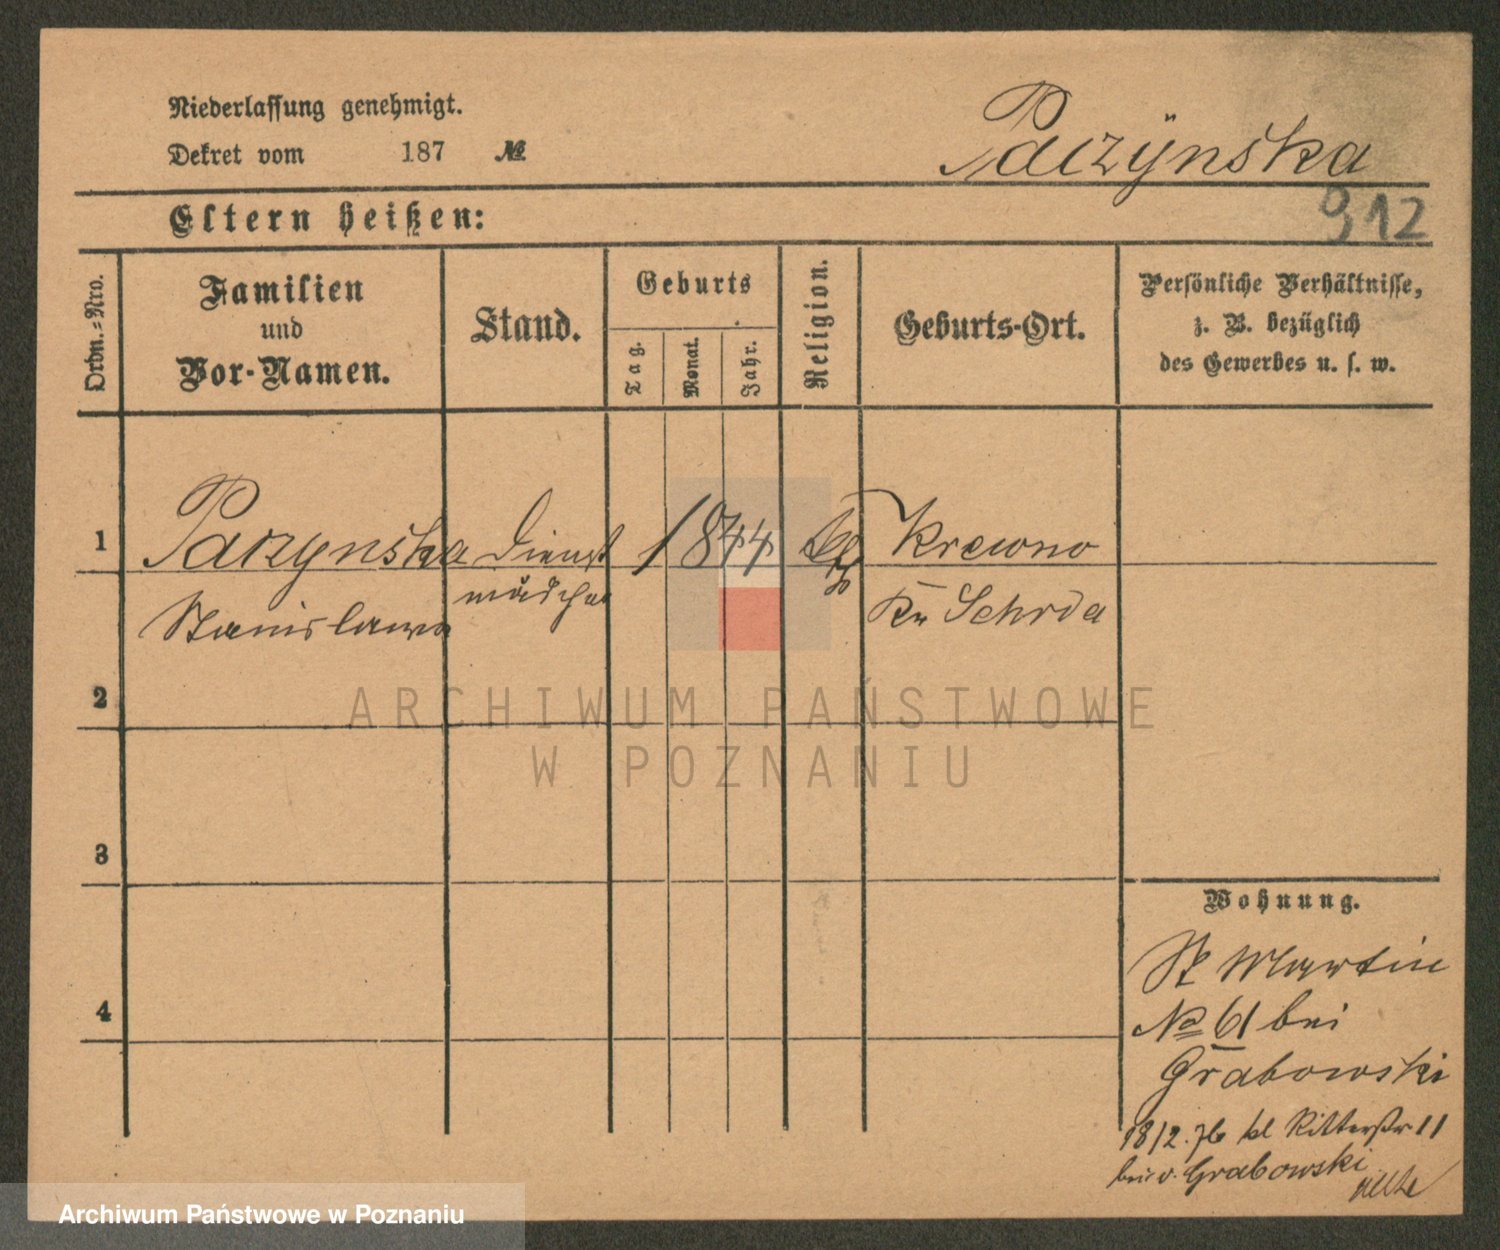 Niederlassung genehmigt.
Dekret vom 187 №
Paczÿnska
Eltern heißen:
912
Ordn.=Nro.
Familien
und
Vor-Namen.
Stand.
Geburts
Tag.
Monat.
Jahr.
Religion.
Geburts-Ort.
Persönliche Verhältnisse,
z. B. bezüglich
des Gewerbes u. s. w.
1
Paczynska Dienst 1844 Krewno
Stanislawa mädchen Kr Schrda
2
ARCHIWUM PAŃSTWOWE
W POZNANIU
3
Wohnung.
St Martin
4
No 61 bei
Grabowski
18/2.76 kl Ritterstr 11
bei v. Grabowski
Archiwum Państwowe w Poznaniu